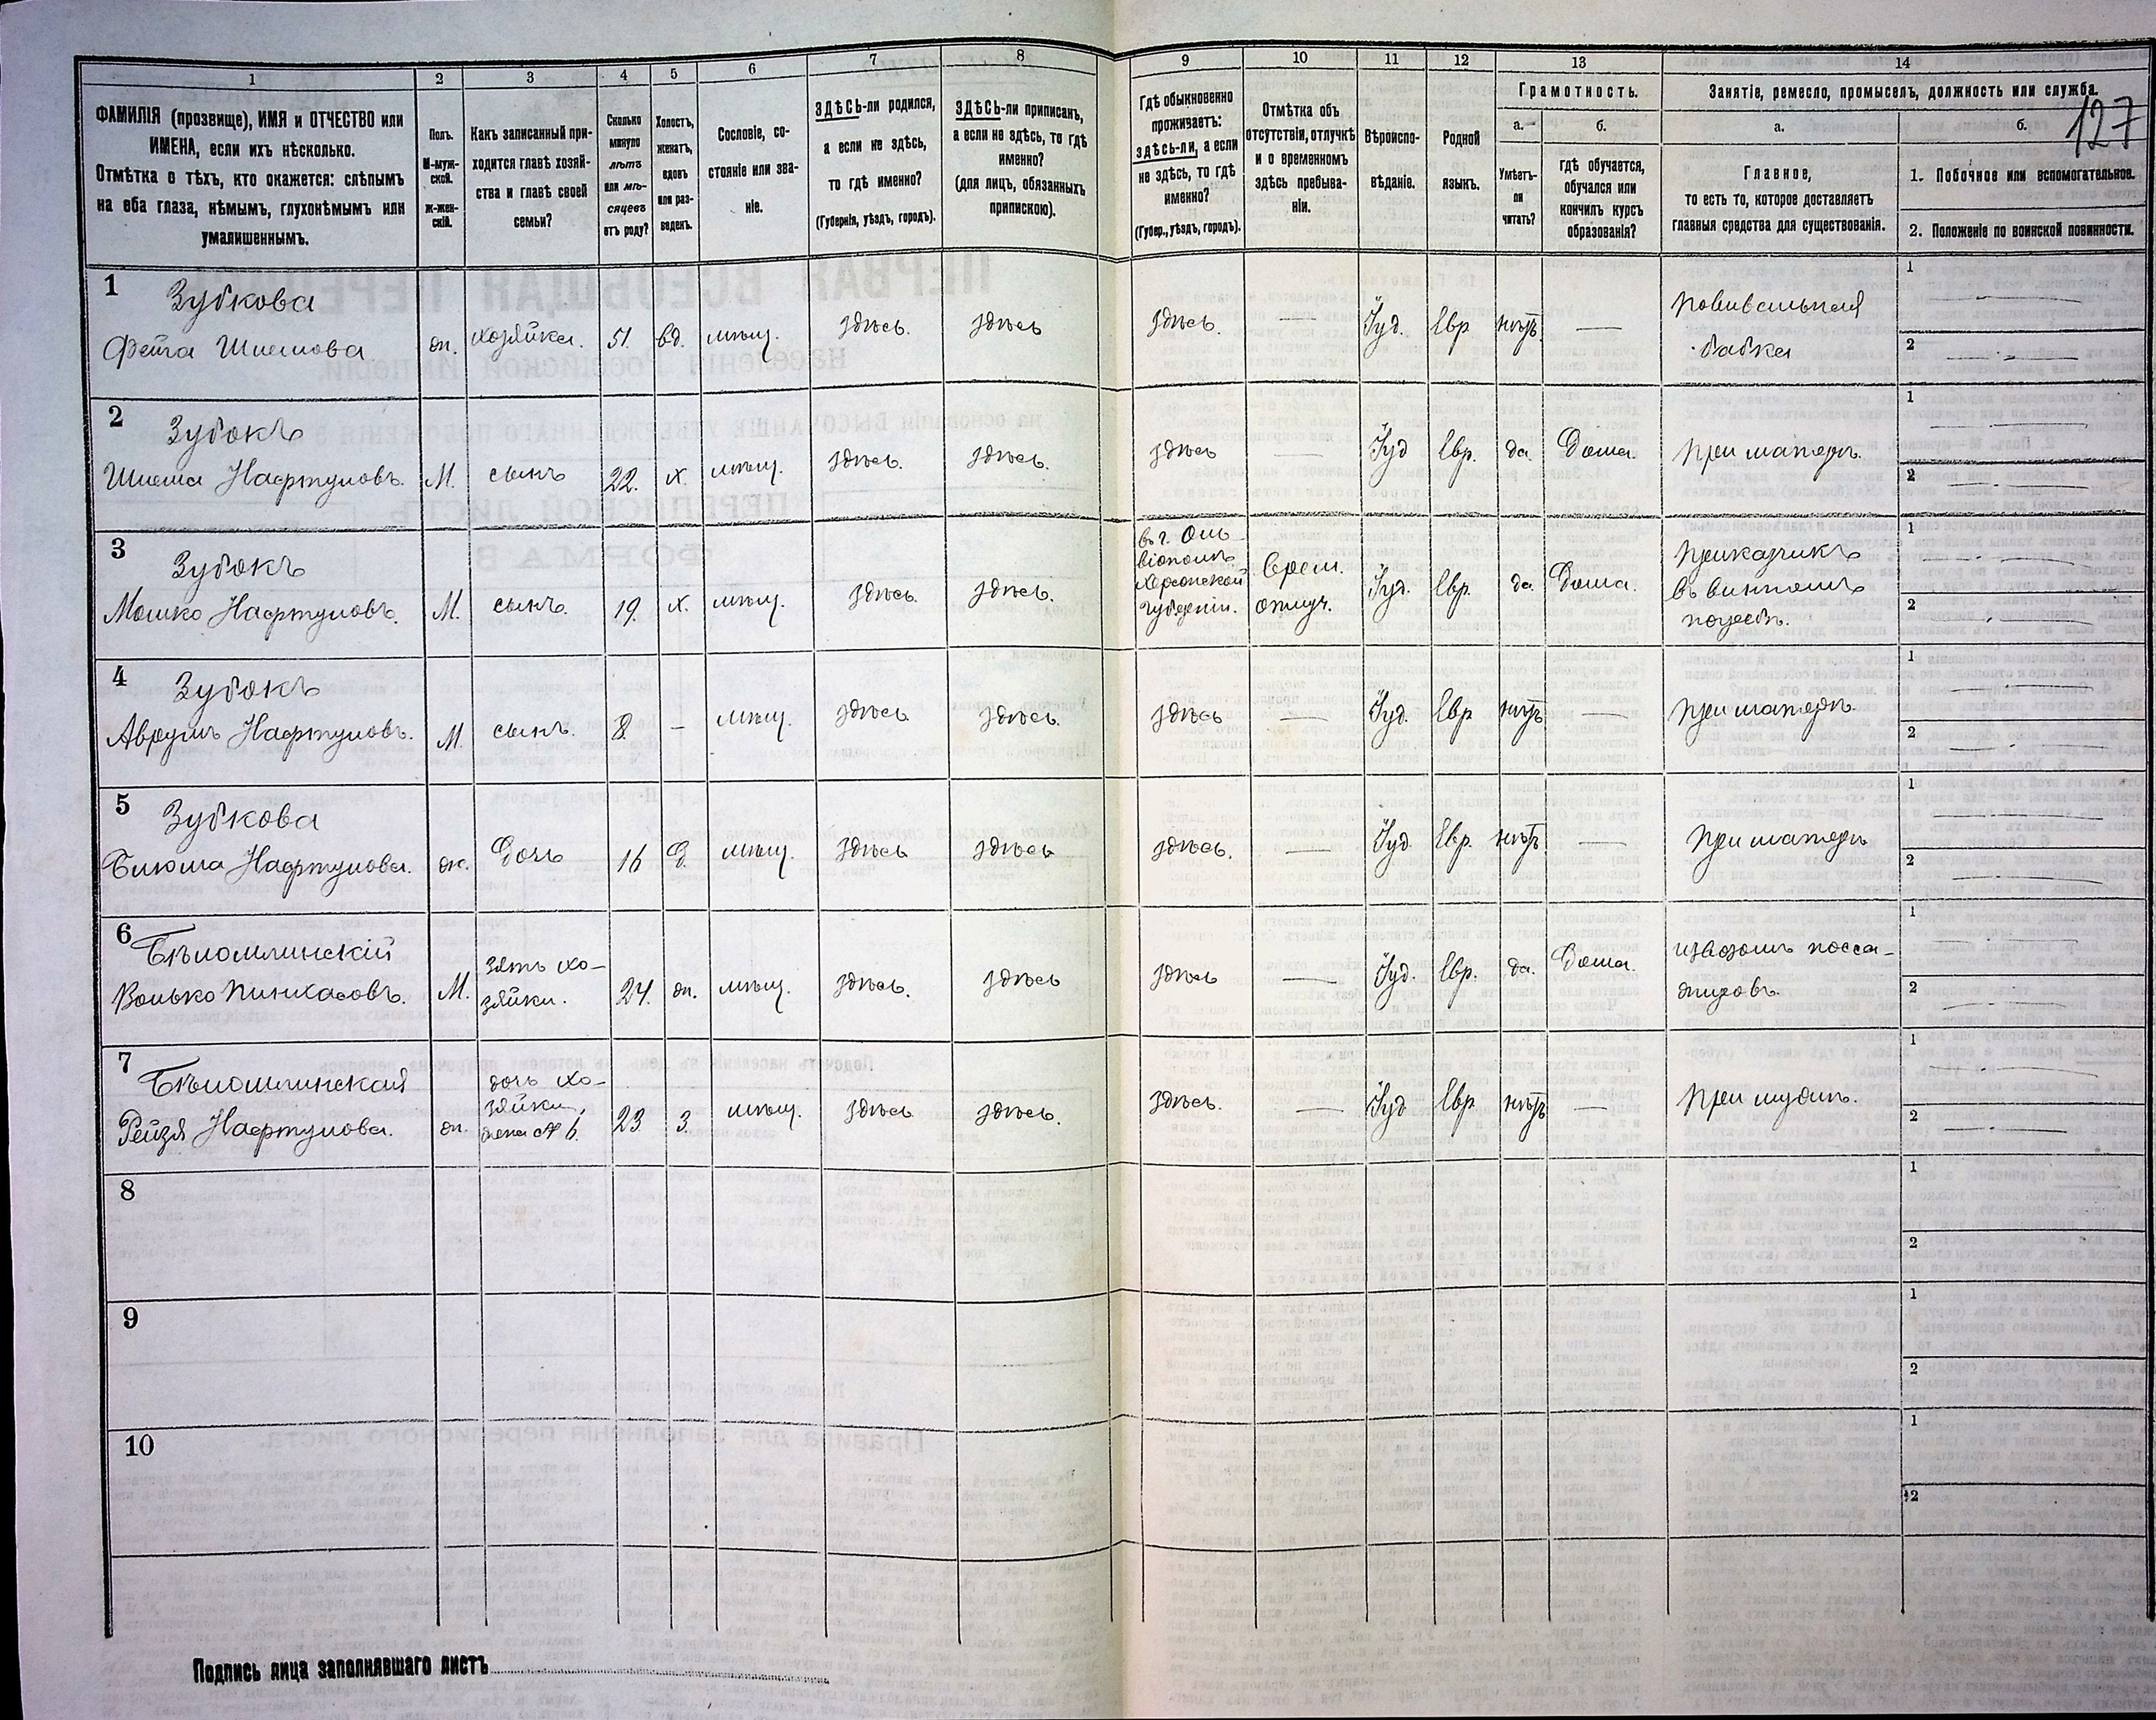 1 2 3 4 5 6 7 8 9 10 11 12 13 14
127
ФАМИЛІЯ (прозвище), ИМЯ и ОТЧЕСТВО или
ИМЕНА, если ихъ нѣсколько.
Отмѣтка о тѣхъ, кто окажется: слѣпымъ
на оба глаза, нѣмымъ, глухонѣмымъ или
умалишеннымъ.
Полъ.
М-муж-
ской.
Ж-жен-
скій.
Какъ записанный при-
ходится главѣ хозяй-
ства и главѣ своей
семьи?
Сколько
минуло
лѣтъ
или мѣ-
сяцевъ
отъ роду?
Холостъ,
женатъ,
вдовъ
или раз-
веденъ.
Сословіе, со-
стояніе или зва-
ніе.
ЗДѢСЬ-ли родился,
а если не здѣсь,
то гдѣ именно?
(Губернія, уѣздъ, городъ).
ЗДѢСЬ-ли приписанъ,
а если не здѣсь, то гдѣ
именно?
(для лицъ, обязанныхъ
припискою).
Гдѣ обыкновенно
проживаетъ:
здѣсь-ли, а если
не здѣсь, то гдѣ
именно?
(Губер., уѣздъ, городъ).
Отмѣтка объ
отсутствіи, отлучкѣ
и о временномъ
здѣсь пребыва-
ніи.
Вѣроиспо-
вѣданіе.
Родной
языкъ.
Грамотность.
а.
Умѣетъ-
ли
читать?
б.
гдѣ обучается,
обучался или
кончилъ курсъ
образованія?
Занятіе, ремесло, промыселъ, должность или служба.
а.
Главное,
то есть то, которое доставляетъ
главныя средства для существованія.
б.
1. Побочное или вспомогательное.
2. Положеніе по воинской повинности.
1 Зубкова
Фейга Шлемова ж. хозяйка. 51. вд. мѣщ. здѣсь. здѣсь здѣсь. — Іуд. Евр нѣтъ. — повивальная
бабка
1 —
2 —
2 Зубокъ
Шлема Нафтуловъ. М. сынъ 22. х. мѣщ. здѣсь. здѣсь. здѣсь — Іуд Евр. да. Дома. при матери.
1 —
2 —
3 Зубокъ
Мошко Нафтуловъ. М. сынъ. 19. х. мѣщ. здѣсь. здѣсь.
въ г. Оль-
віополѣ
Херсонской
губерніи.
Врем.
отлуч.
Іуд. Евр. да. Дома.
приказчикъ
въ винномъ
погребѣ.
1 —
2 —
4 Зубокъ
Аврумъ Нафтуловъ. М. сынъ. 8. — мѣщ. здѣсь здѣсь. здѣсь — Іуд. Евр нѣтъ — при матери.
1 —
2 —
5 Зубкова
Блюма Нафтулова. ж. дочь 16 Д. мѣщ. здѣсь здѣсь здѣсь. — Іуд. Евр. нѣтъ — при матери
1 —
2 —
6 Бѣломлинскій
Волько Пинхасовъ. М. зять хо-
зяйки. 24. ж. мѣщ. здѣсь. здѣсь здѣсь — Іуд. Евр. да. Дома. извозомъ посса-
жировъ.
1 —
2 —
7 Бѣломлинская
Рейзя Нафтулова. ж. дочь хо-
зяйки,
жена № 6. 23. З. мѣщ. здѣсь здѣсь. здѣсь. — Іуд Евр нѣтъ — при мужѣ.
1 —
2 —
8
1
2
9
1
2
10
1
2
Подпись лица заполнявшаго листъ